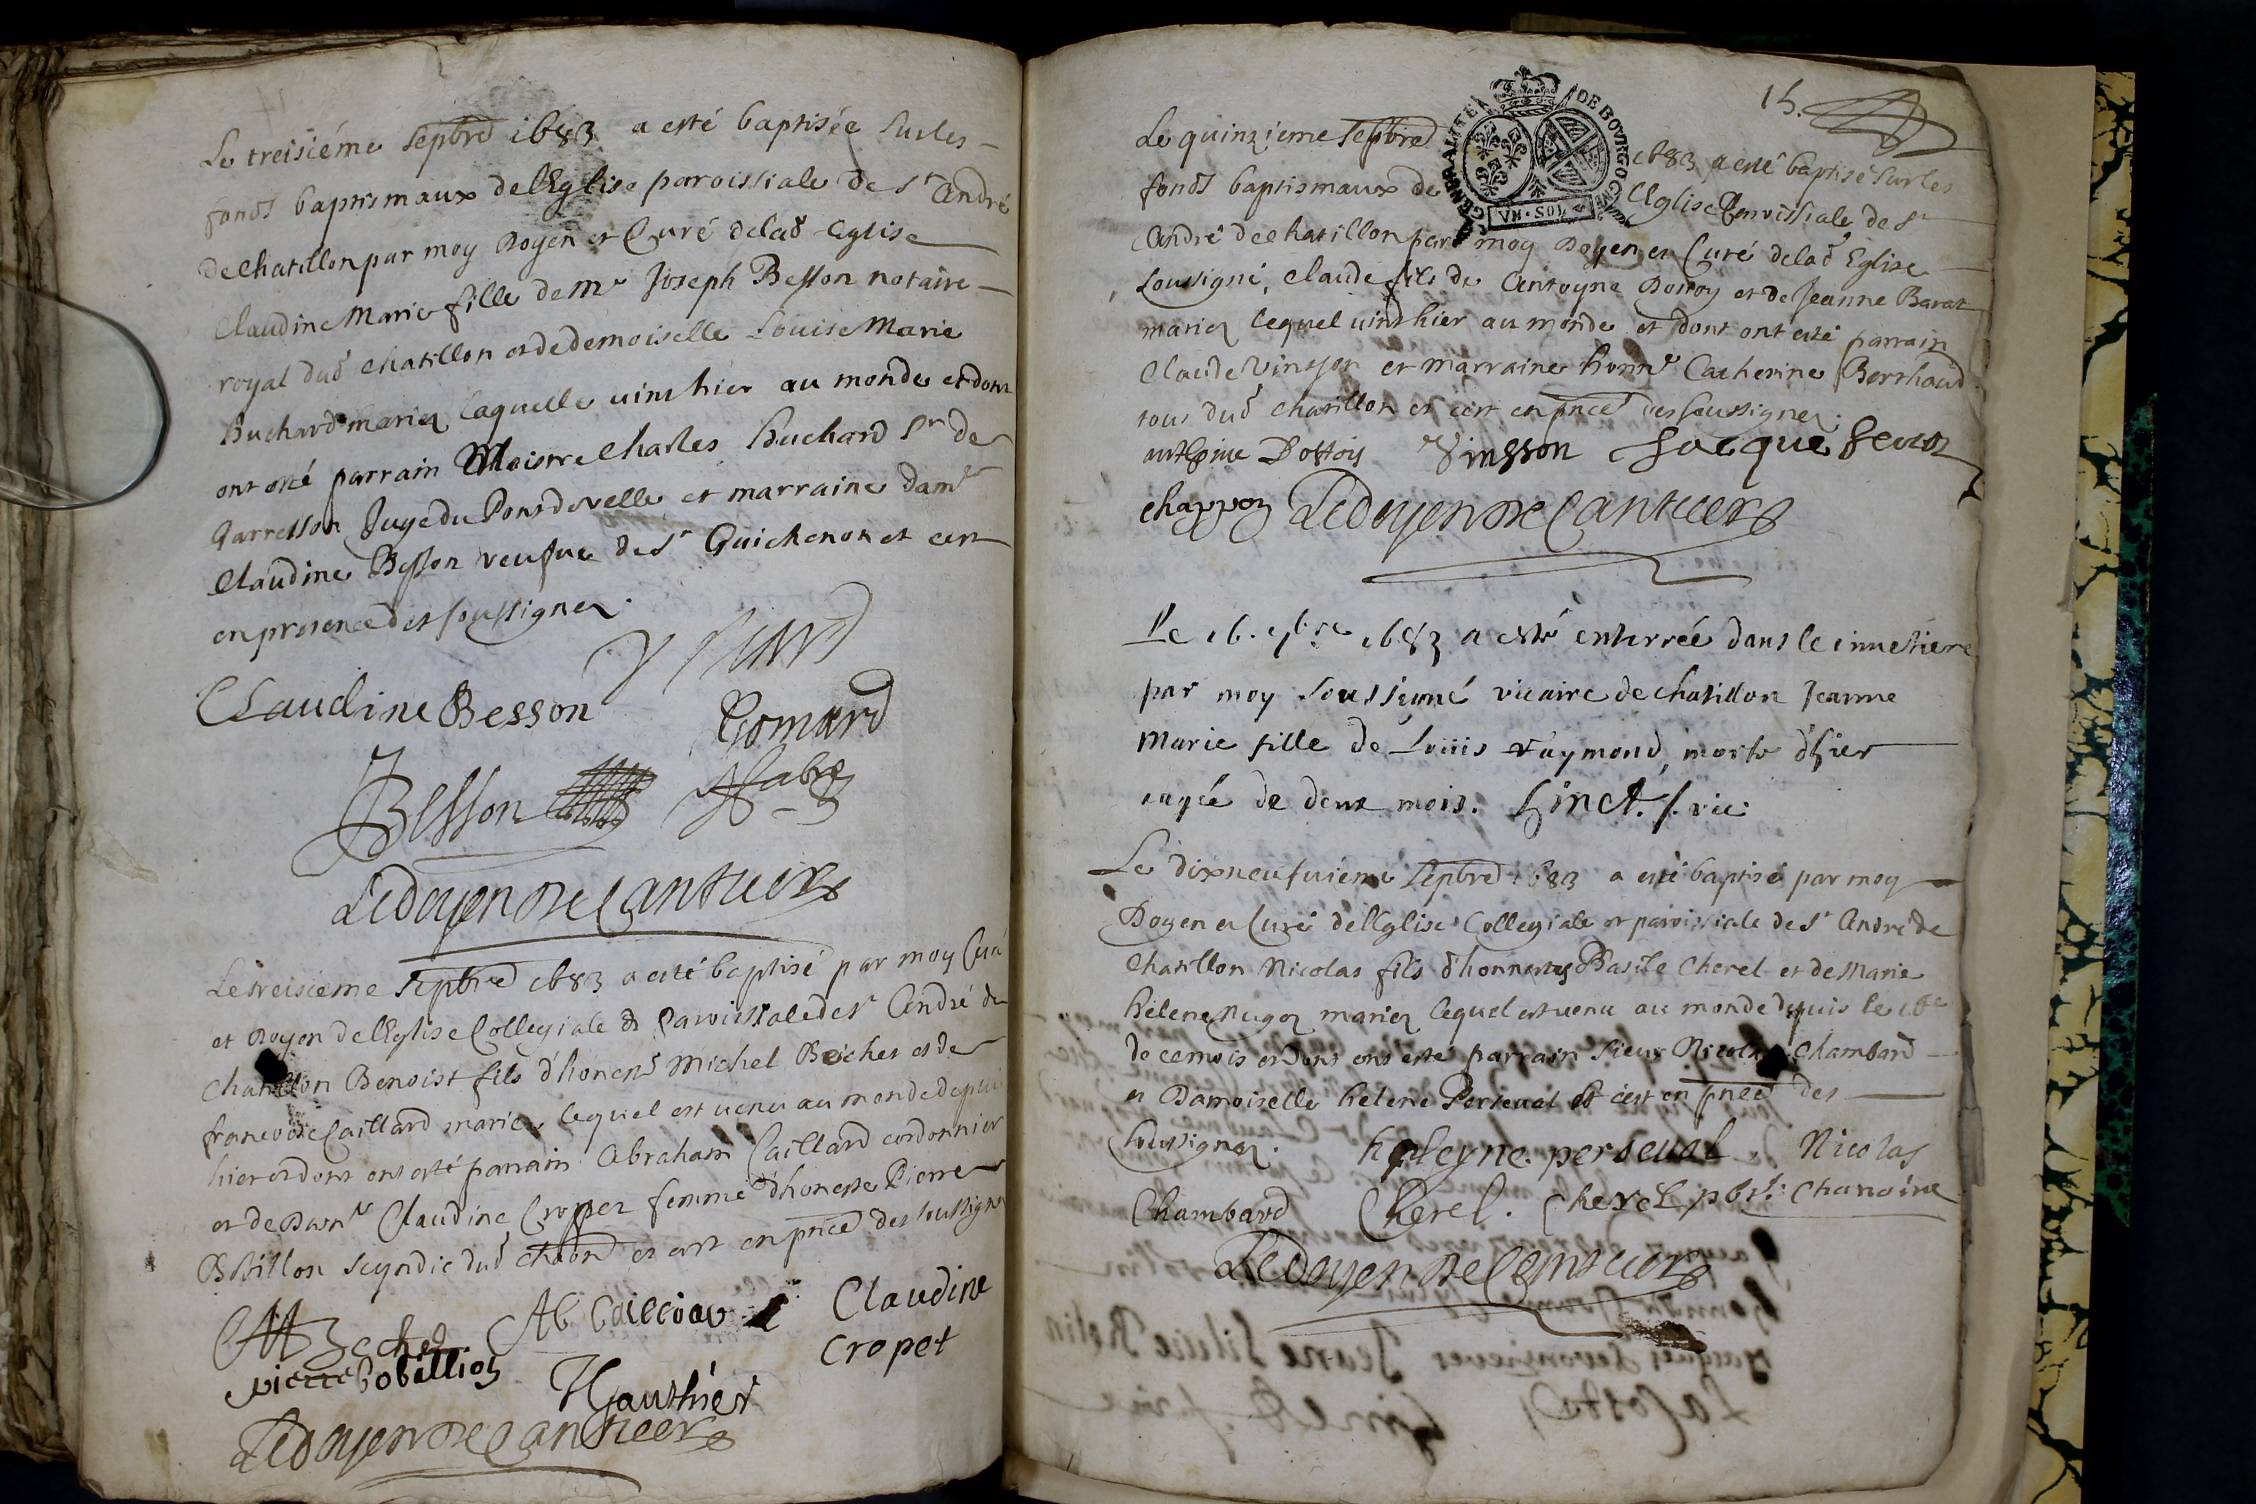 Le treisiéme sepbre 1683 a esté baptisée sur les
fonds baptismaux de lEglise paroissiale de st André
de chatillon par moy Doyen et Curé delad Eglise
Claudine Marie fille de me Joseph Besson notaire
royal dud chatillon et de demoiselle Louise Marie
Buchard mariez laquelle vint hier au monde et dont
ont esté parrain Maistre Charles Buchard sr de
Garresson Juge du Pontdevelle et marraine dame
Claudine Besson veufve de sr Guichenon et cest
en presence des soussignez.
Claudine Besson
Gomard
Besson Fabre
Ledoyen De Cantuers
Le treisieme sepbre 1683 a esté baptisé par moy Curé
et Doyen de lEglise Collegiale et Paroissiale de st André de
chatillon Benoist fils d'honeste Michel Beiches et de
francoise Caillard mariez lequel est venu au monde depuis
hier et dont ont esté parrain Abraham Caillard cordonnier
et de Claudine Cropet femme d'honeste Pierre
Bobillon scyndic dud et cest en pnce des soussignez
Claudine
pierre bobillion
cropet
Gauthier
Ledoyen De Cantuers
15.
GENERALITE DE BOVRGOGNE
Le quinzieme sepbre 1683 a esté baptisé sur les
fonds baptismaux de lEglise Paroissiale de st
André de chatillon par moy Doyen et Curé delad Eglise
soussigné, Claude fils de Antoyne Dottoy et de Jeanne Barat
mariez lequel vint hier au monde et dont ont esté parrain
Claude Vinsson et marraine honne Catherine Berthaud
tous dud chatillon et cest en pnce des soussignez.
anthoine Dottoy Vinsson Jacque
chappoz Ledoyen De Cantuers
Le 16. 7bre 1683 a esté enterrée dans le cimetiere
par moy soussigné vicaire de chatillon Jeanne
Marie fille de Louis raymond, morte d'hier
aagée de deux mois. Ginet. vic:
Le dixneufvieme sepbre 1683 a esté baptisé par moy
Doyen et Curé de lEglise Collegiale et paroissiale de st André de
Chatillon Nicolas fils d'honnestes Basile Cherel et de Marie
helene mariez lequel est venu au monde depuis le 16e
de ce mois et dont ont esté parrain sieur Nicolas Chambard
et Damoiselle helene Perseval et cest en pnce des
soussignez. heleyne perseual. Nicolas
Chambard Cherel. Cherel pbre: Chanoine
Ledoyen De Cantuers